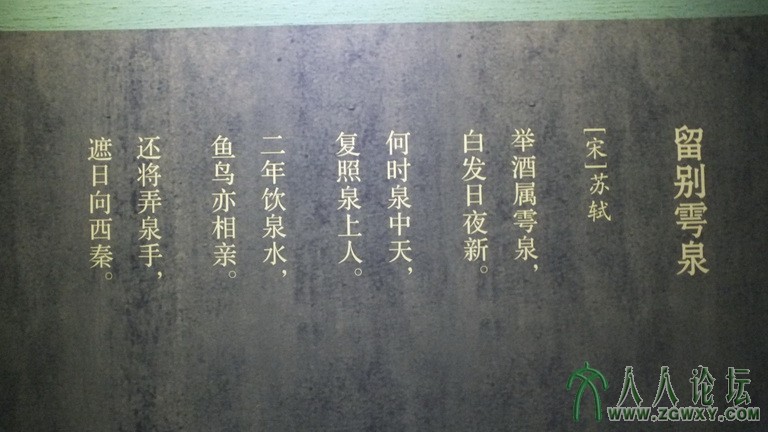 留别雩泉
[宋]苏轼
举酒属雩泉，
白发日夜新。
何时泉中天，
复照泉上人。
二年饮泉水，
鱼鸟亦相亲。
还将弄泉手，
遮日向西秦。
人人论坛
WWW.ZGWXY.COM